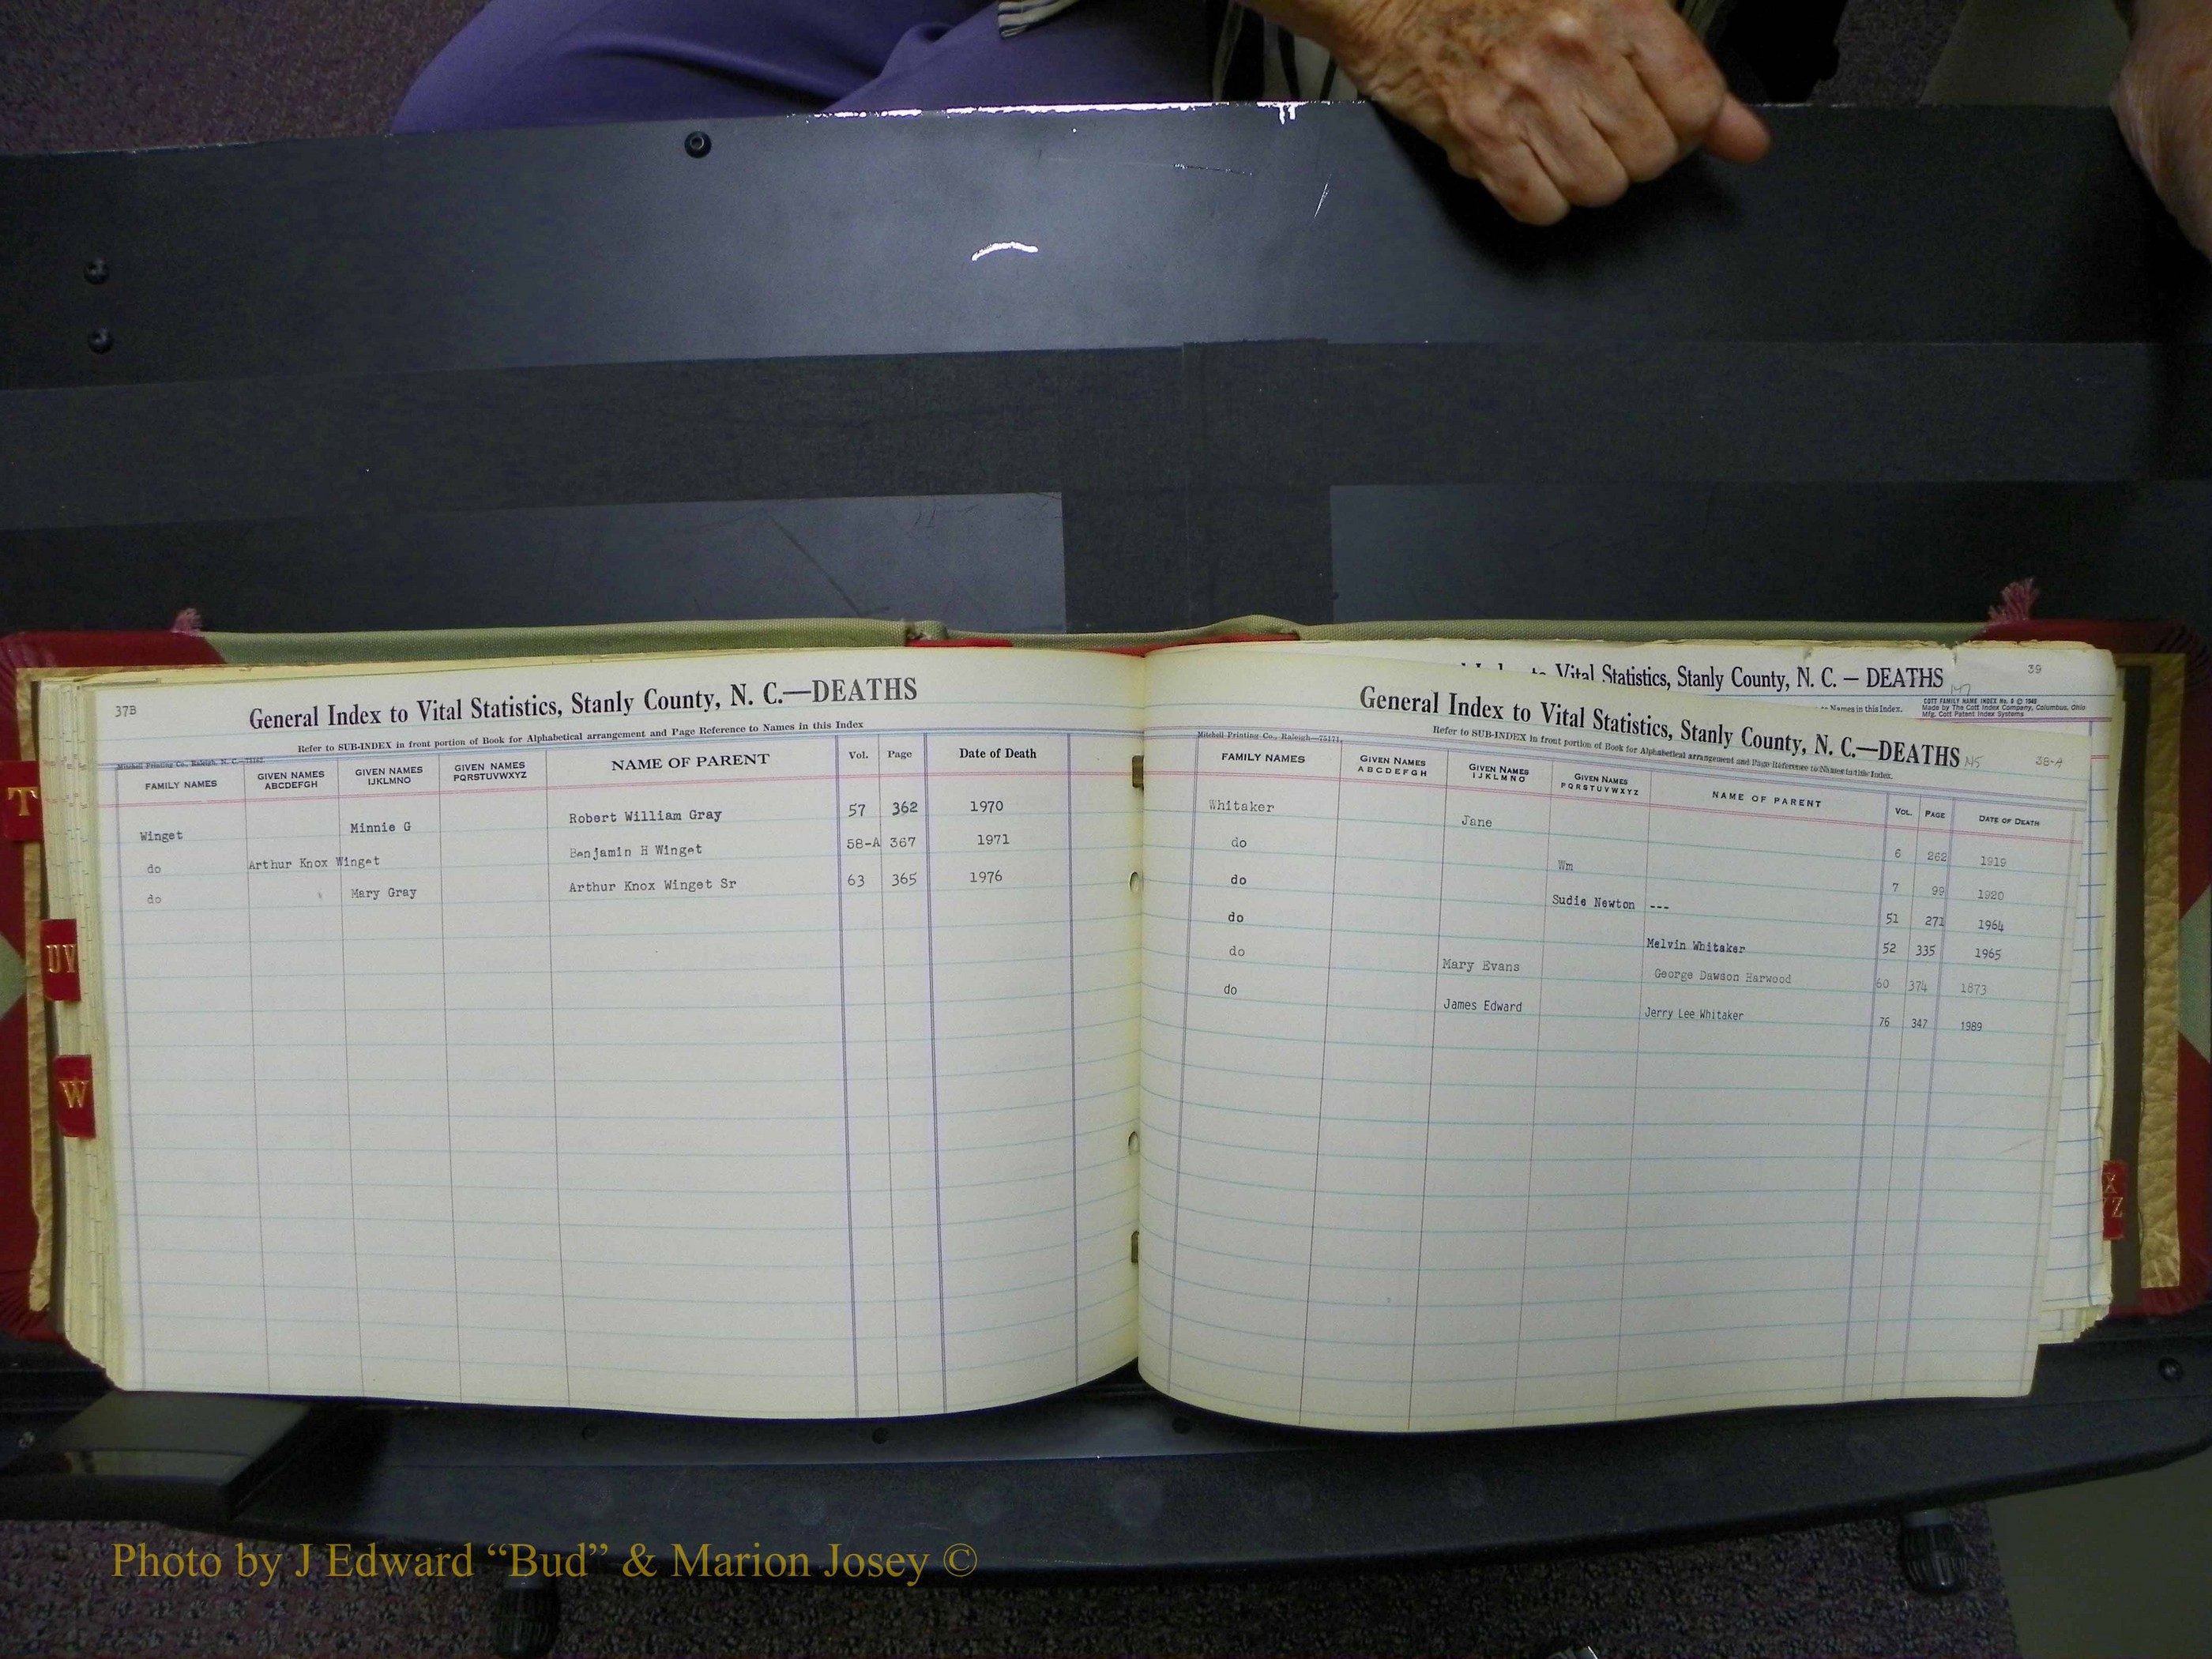 37B
General Index to Vital Statistics, Stanly County, N. C.—DEATHS
Refer to SUB-INDEX in front portion of Book for Alphabetical arrangement and Page Reference to Names in this Index
Mitchell Printing Co., Raleigh, N. C.
FAMILY NAMES GIVEN NAMES ABCDEFGH GIVEN NAMES IJKLMNO GIVEN NAMES PQRSTUVWXYZ NAME OF PARENT Vol. Page Date of Death
Winget Minnie G Robert William Gray 57 362 1970
do Arthur Knox Winget Benjamin H Winget 58-A 367 1971
do Mary Gray Arthur Knox Winget Sr 63 365 1976
T
UV
W
to Vital Statistics, Stanly County, N. C. — DEATHS
39
Names in this Index.
COTT FAMILY NAME INDEX
Made by The Cott Index Company, Columbus, Ohio
Mfg. Cott Patent Index Systems
General Index to Vital Statistics, Stanly County, N. C.—DEATHS
38-A
Refer to SUB-INDEX in front portion of Book for Alphabetical arrangement and Page Reference to Names in this Index.
Mitchell Printing Co., Raleigh—75171
FAMILY NAMES GIVEN NAMES ABCDEFGH GIVEN NAMES IJKLMNO GIVEN NAMES PQRSTUVWXYZ NAME OF PARENT VOL. PAGE DATE OF DEATH
Whitaker Jane 6 262 1919
do Wm 7 99 1920
do Sudie Newton --- 51 271 1964
do Melvin Whitaker 52 335 1965
do Mary Evans George Dawson Harwood 60 374 1873
do James Edward Jerry Lee Whitaker 76 347 1989
X
Z
Photo by J Edward “Bud” & Marion Josey ©